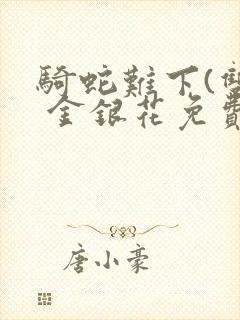 騎蛇難下(雙
金銀花免費
唐小豪